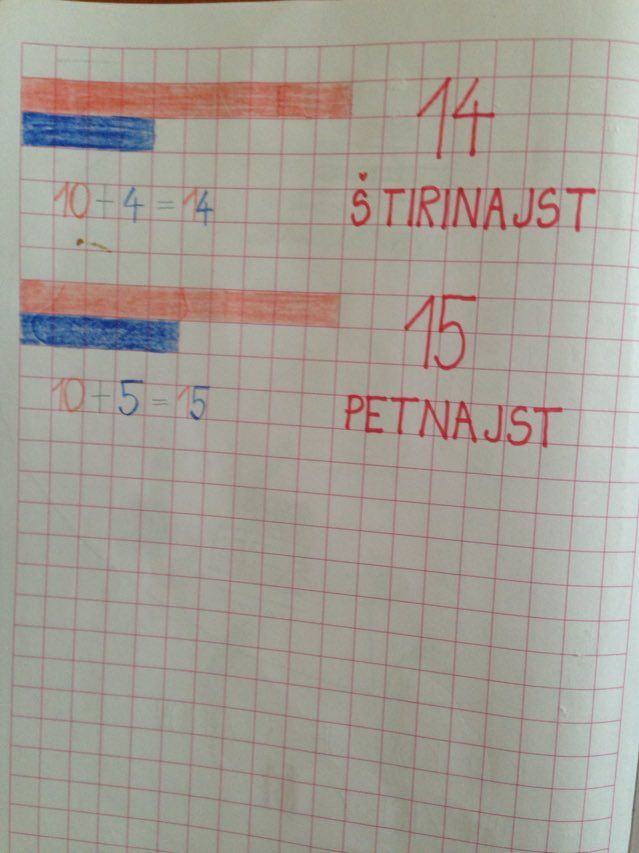 14
10 + 4 = 14
ŠTIRINAJST
15
10 + 5 = 15
PETNAJST